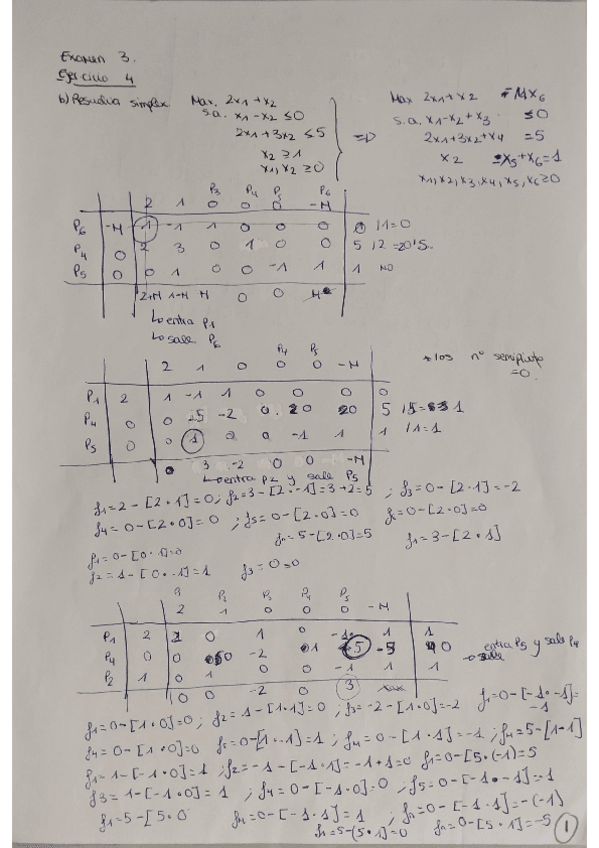 Examen 3.
Ejercicio 4
b) Resuelva simplex Max. 2x1+x2
s.a. x1-x2 ≤0
2x1+3x2 ≤5
x2 ≥1
x1,x2 ≥0
Max 2x1+x2 -Mx6
s.a. x1-x2+x3 ≤0
2x1+3x2+x4 =5
x2 -x5+x6=1
x1,x2,x3,x4,x5,x6≥0
P3 P4 P5 P6
2 1 0 0 0 -M
P6 -M 1 -1 1 0 0 0 0 /1=0
P4 0 2 3 0 1 0 0 5 /2
P5 0 0 1 0 0 -1 1 1 NO
2+M 1-M M 0 0
↳entra P1
↳sale P6
P4 P5
2 1 0 0 0 -M
P1 2 1 -1 1 0 0 0 0
P4 0 0 5 -2 0 5
P5 0 0 1 0 0 -1 1 1 /1=1
0 3 -2 0 0 -M
↳entra P2 y sale P5
* los nº
=0.
f1=2-[2·1]=0; f2=3-[2·-1]=3+2=5 ; f3=0-[2·1]=-2
f4=0-[2·0]=0 ; f5=0-[2·0]=0 f=0-[2·0]=0
f=5-[2·0]=5 f1=3-[2·1]
f1=0-[0·1]=0
f2=1-[0·-1]=1 f3=0=0
3 P2 P3 P4 P5
2 1 0 0 0 -M
P1 2 1 0 1 0 -1 1 1
P4 0 0 0 -2 1 5 -5 0
P2 1 0 1 0 0 -1 1 1
0 0 -2 0 3
entra P5 y sale P4
f1=0-[1·0]=0; f2=1-[1·1]=0 ; f3=-2-[1·0]=-2 f1=0-[-1·-1]=-1
f4=0-[1·0]=0 f5=0-[1·-1]=1 ; fM=0-[1·1]=-1 ; fM=5-[1·1]
f1=1-[-1·0]=1 ; f2=-1-[-1·1]=-1+1=0 f1=0-[5·(-1)=5
f3=1-[-1·0]=1 ; f4=0-[-1·0]=0 ; f5=0-[-1·-1]=-1
f1=5-[5·0 f=0-[-1·1]=1 ; f=0-[-1·1]=-(-1)
f=5-(5·1]=0 f=0-[5·1]=-5
1